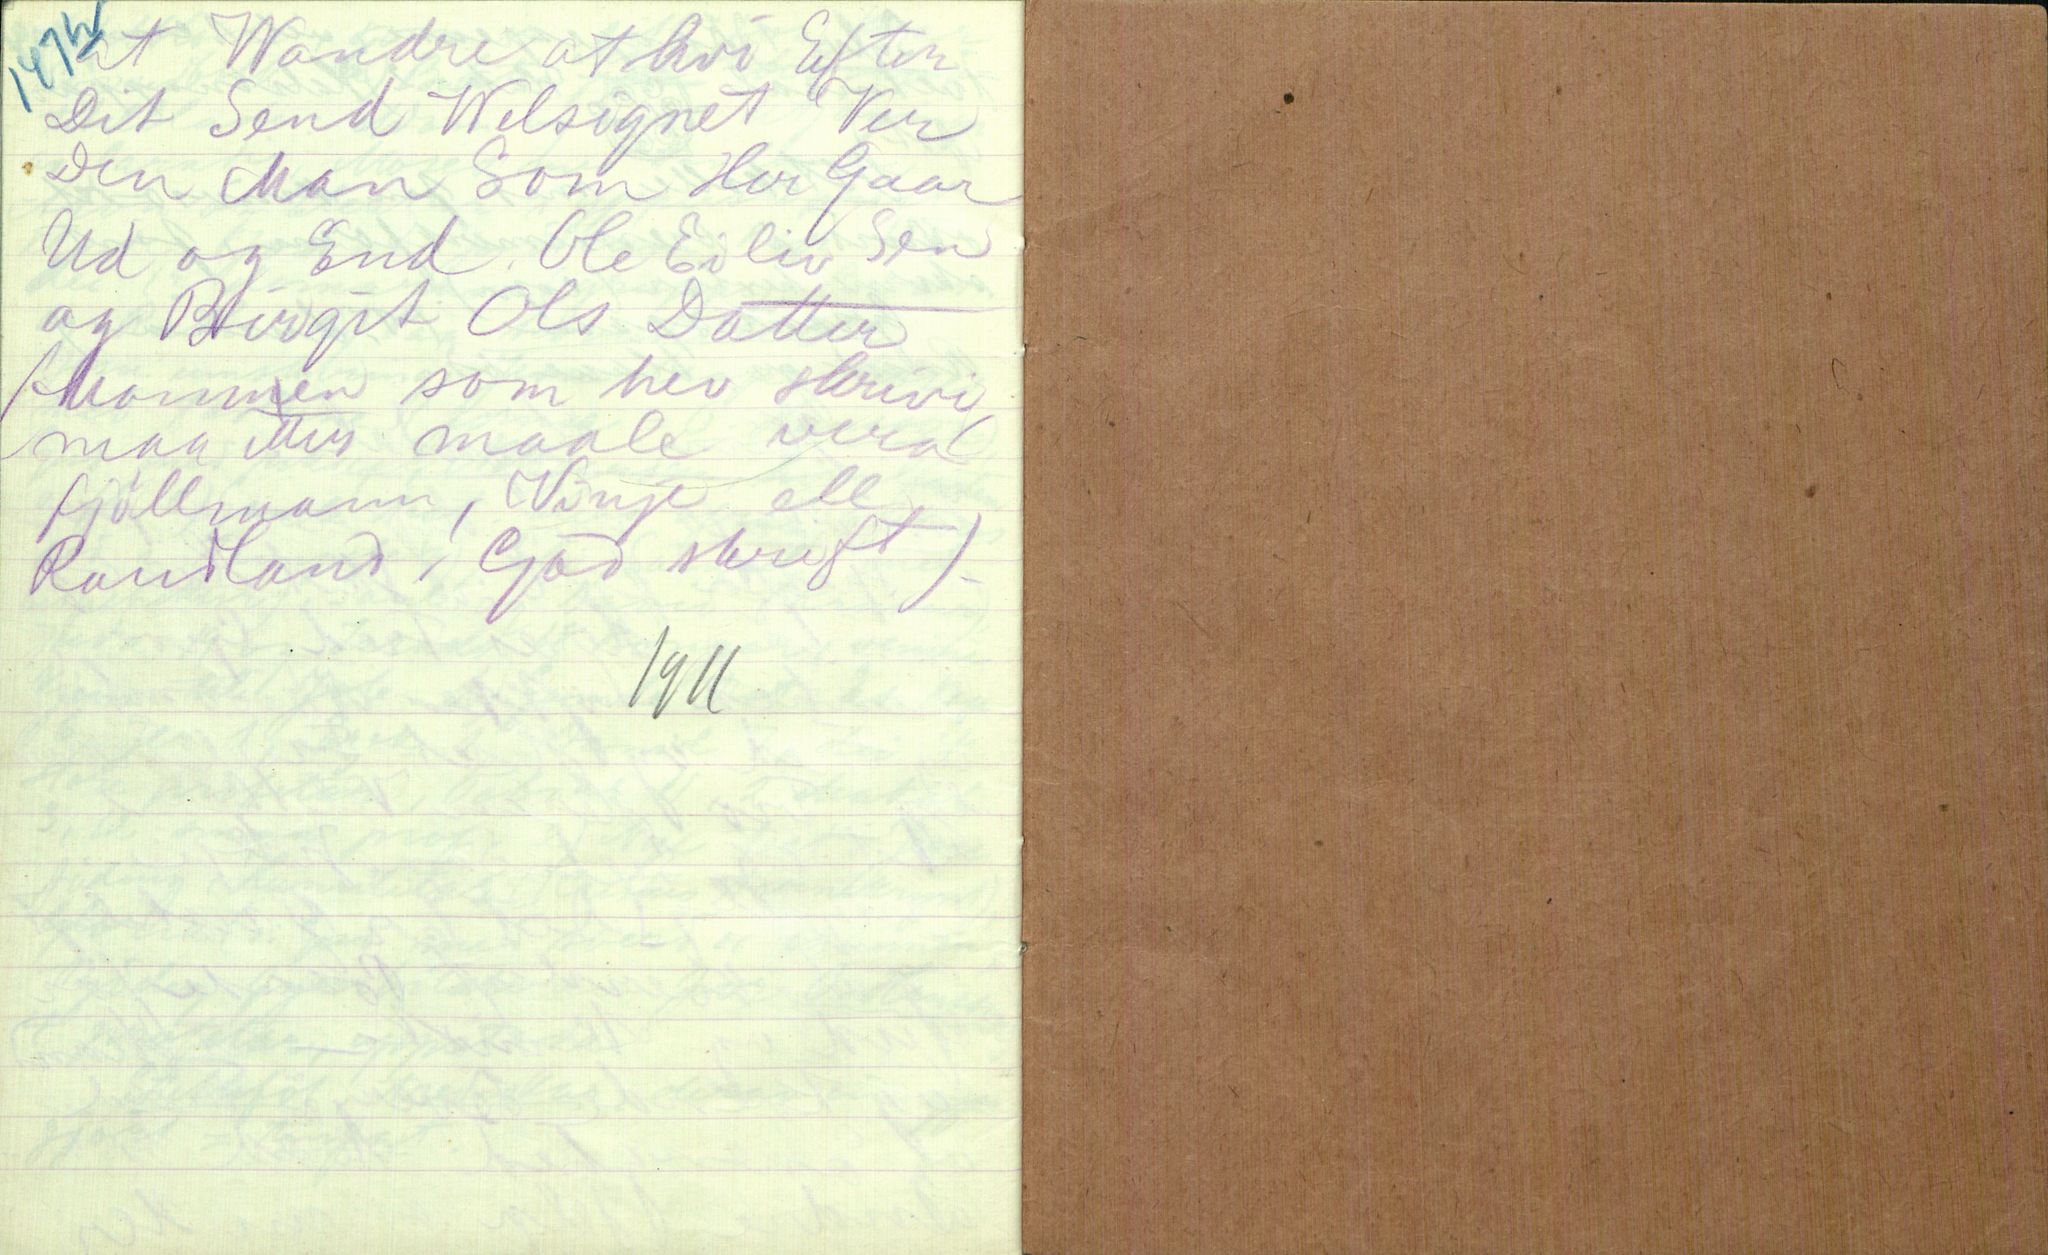 at Wandre at hvi Efter
Dit Send Welsignet Ver
Den Man Som Her Gaar
Ud og End. Ole Eiliv Sen
og Birgit Ols Datter
(Mannen som hev skrivi,
maa etter maale vera
fjøllmann, Vinje ell
Rauland, God skrift).
1911